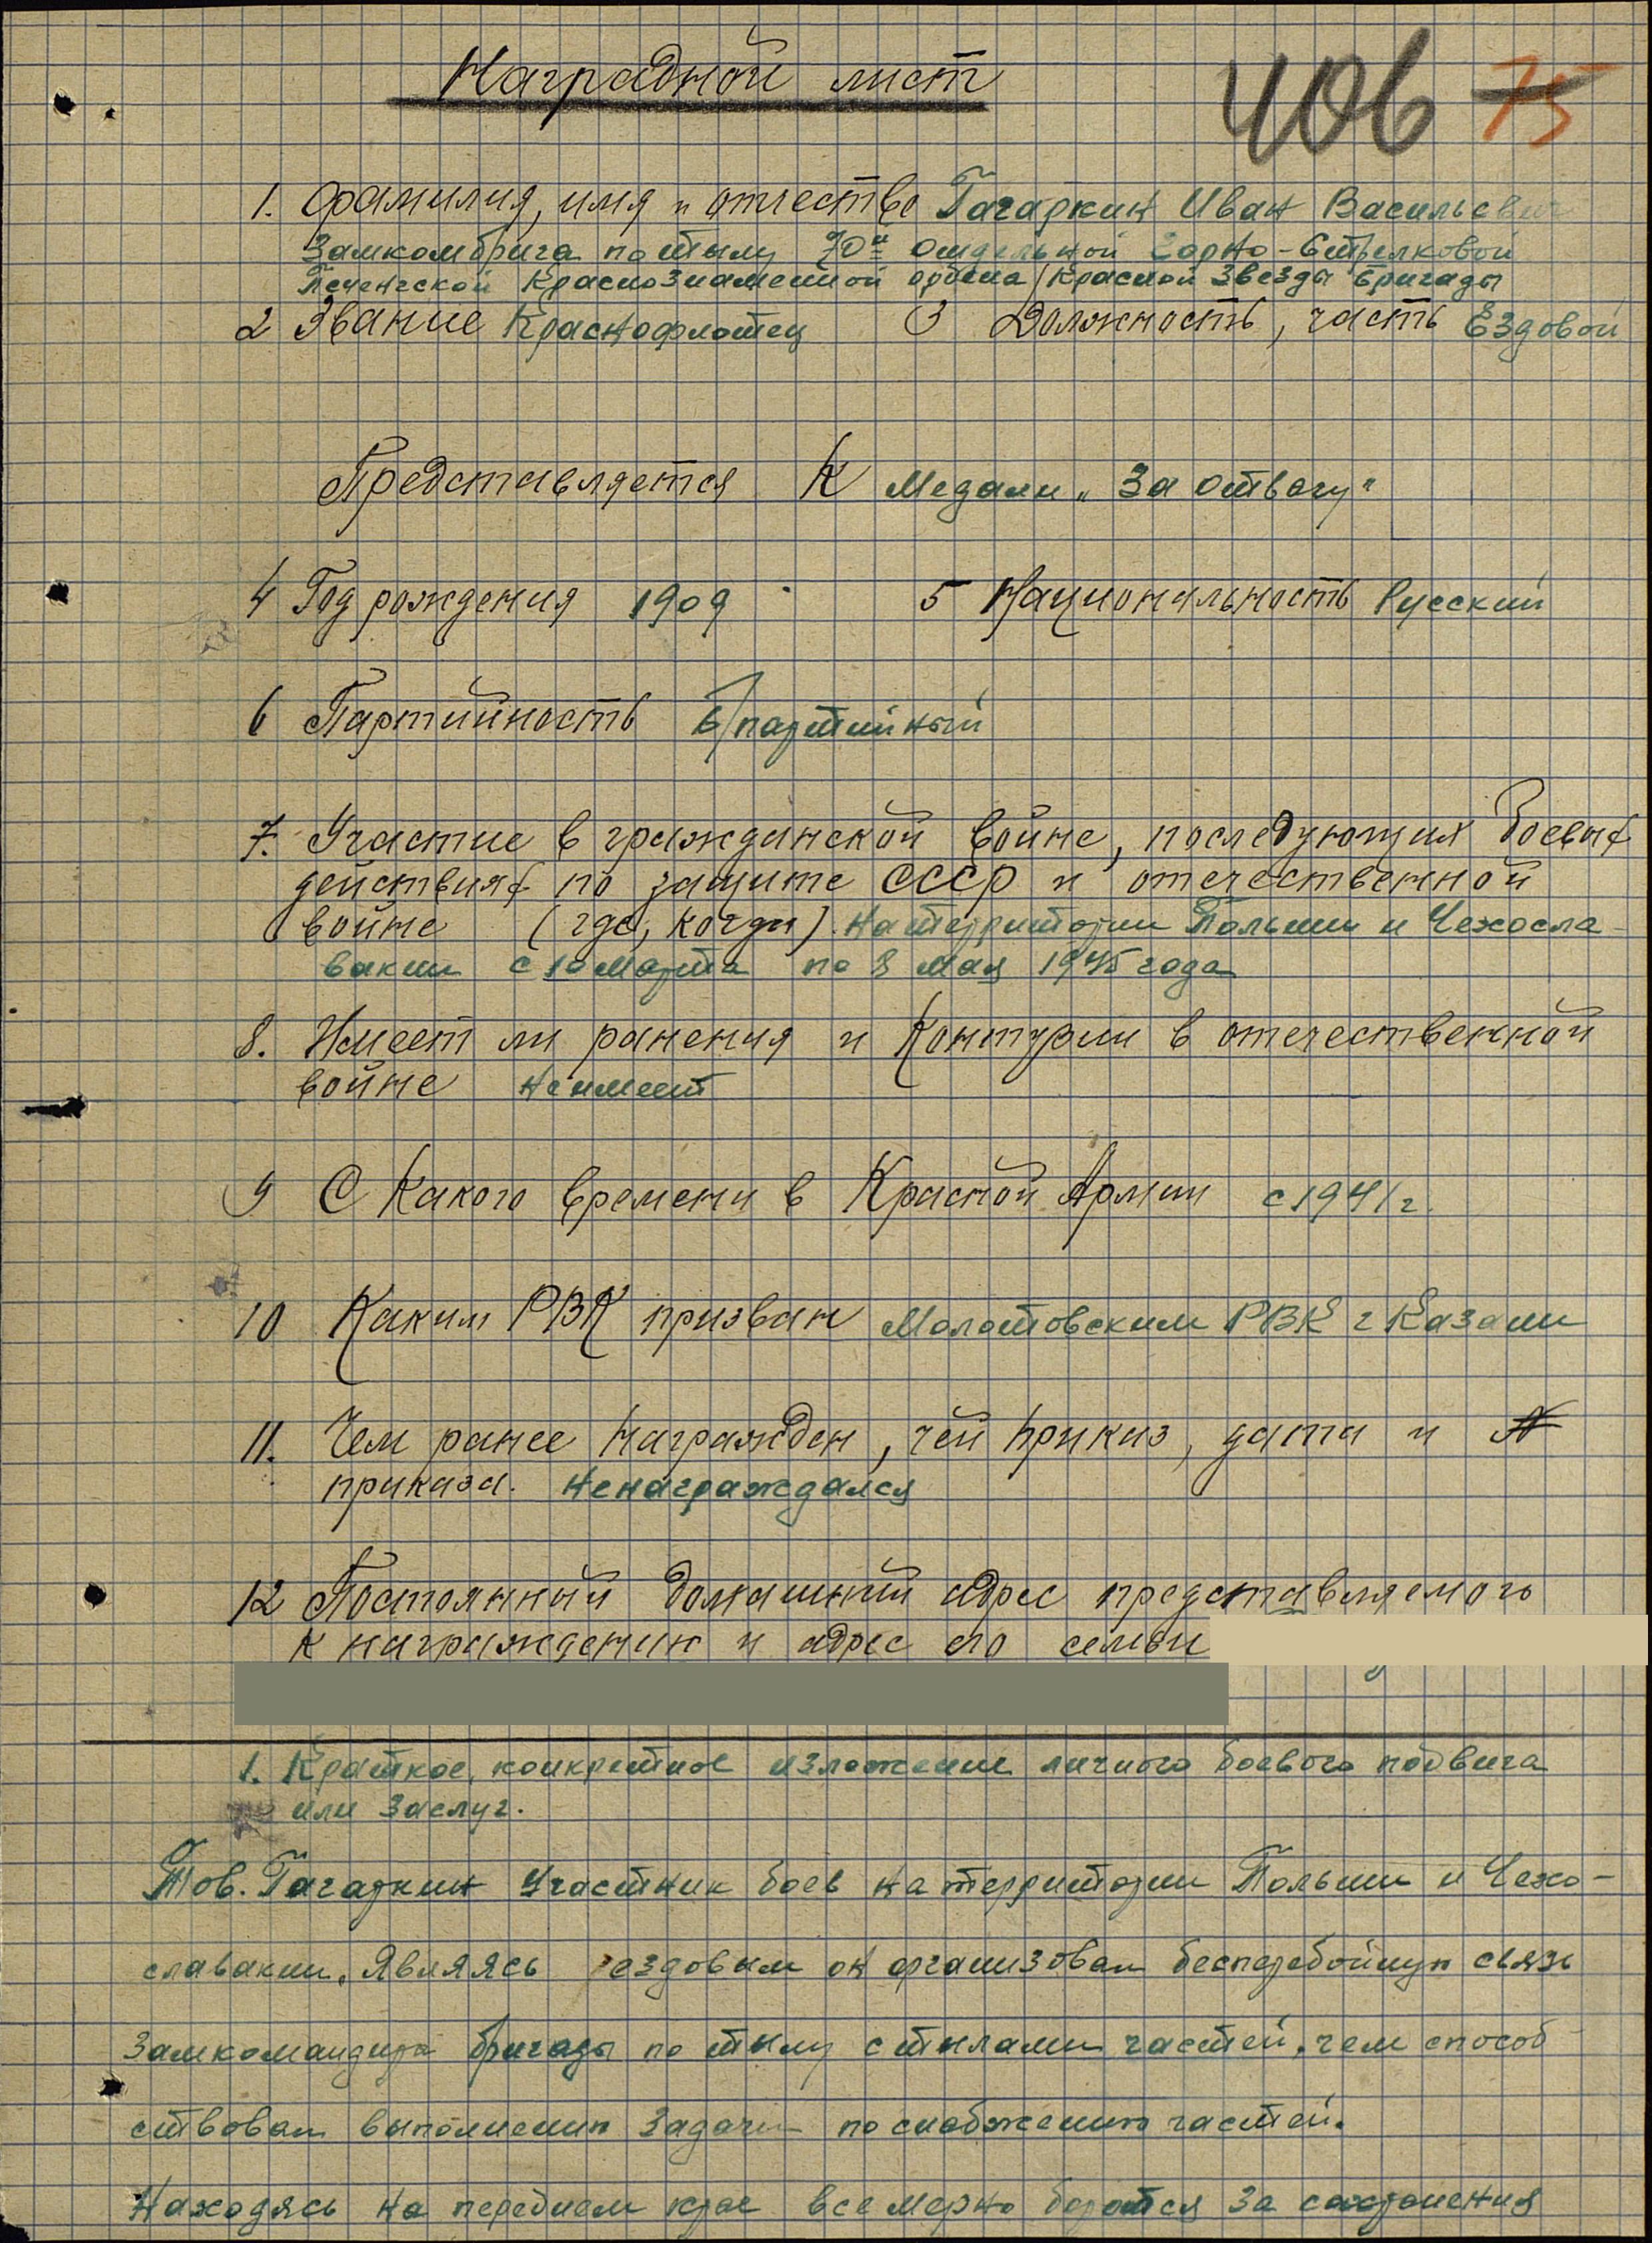 Наградной лист
406 75
1. Фамилия, имя и отчество Гагаркин Иван Васильевич
Замкомбрига по тылу 70й отдельной Горно-Стрелковой
Печенгской Краснознаменной ордена Красной Звезды бригады
2 Звание Краснофлотец 3 Должность, часть Ездовой
Представляется К Медали „За отвагу"
4 Год рождения 1909 5 Национальность Русский
6 Партийность б/партийный
7. Участие в гражданской войне, последующих боевых
действиях по защите СССР и отечественной
войне (где, когда). На территории Польши и Чехосла-
вакии с 10 марта по 8 мая 1945 года
8. Имеет ли ранения и контузии в отечественной
войне не имеет
9 С какого времени в Красной Армии с 1941 г.
10 Каким РВК призван Молотовским РВК г Казани
11. Чем ранее награжден, чей приказ, дата и №
приказа. Ненаграждался
12 Постоянный домашний адрес представляемого
к награждению и адрес его семьи
1. Краткое, конкретное изложение личного боевого подвига
или заслуг.
Тов. Гагаркин участник боев на территории Польши и Чехо-
славакии. Являясь ездовым он организовал бесперебойную связь
Замкомандира бригады по тылу с тылами частей, чем способ
ствовал выполнению задачи по снабжению частей.
Находясь на переднем крае всемерно борется за сохранения